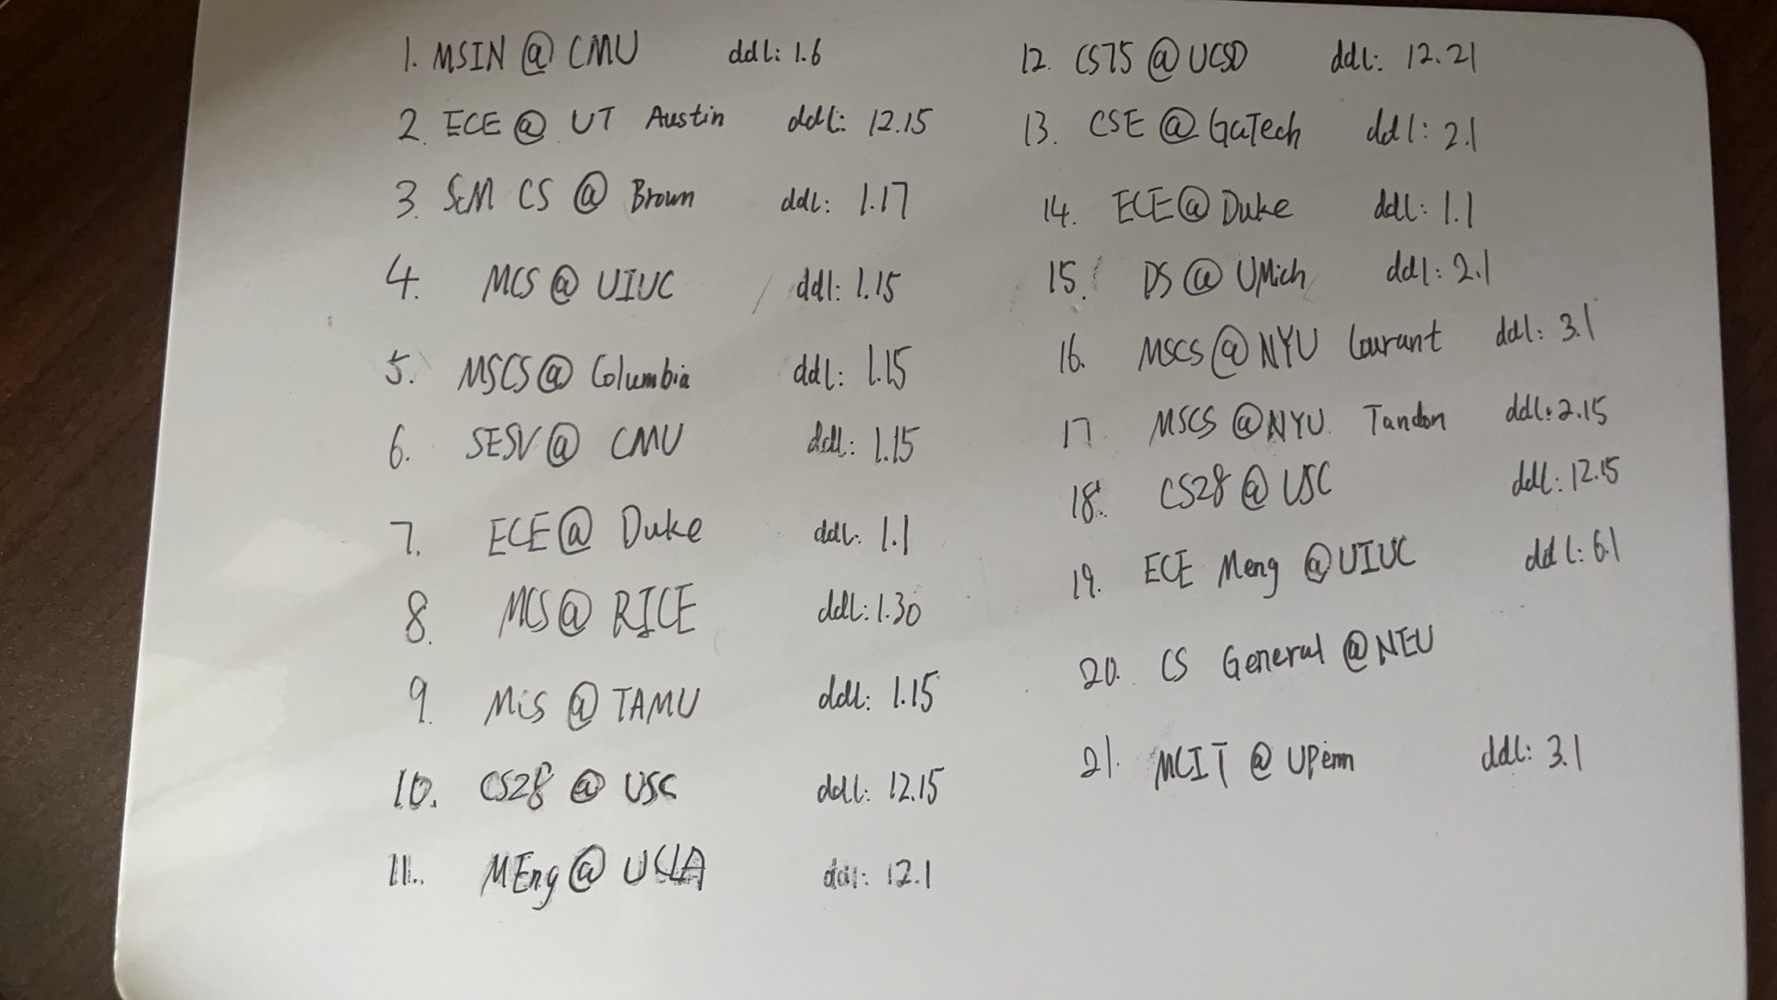 1. MSIN @ CMU ddl: 1.6
2. ECE @ UT Austin ddl: 12.15
3. ScM CS @ Brown ddl: 1.17
4. MCS @ UIUC ddl: 1.15
5. MSCS @ Columbia ddl: 1.15
6. SESV @ CMU ddl: 1.15
7. ECE @ Duke ddl: 1.1
8. MCS @ RICE ddl: 1.30
9. MiS @ TAMU ddl: 1.15
10. CS28 @ USC ddl: 12.15
11. MEng @ UCLA ddl: 12.1
12. CS75 @ UCSD ddl: 12.21
13. CSE @ GaTech ddl: 2.1
14. ECE @ Duke ddl: 1.1
15. DS @ UMich ddl: 2.1
16. MSCS @ NYU Courant ddl: 3.1
17. MSCS @ NYU. Tandon ddl: 2.15
18. CS28 @ USC ddl: 12.15
19. ECE Meng @ UIUC ddl: 6.1
20. CS General @ NEU
21. MCIT @ UPenn ddl: 3.1